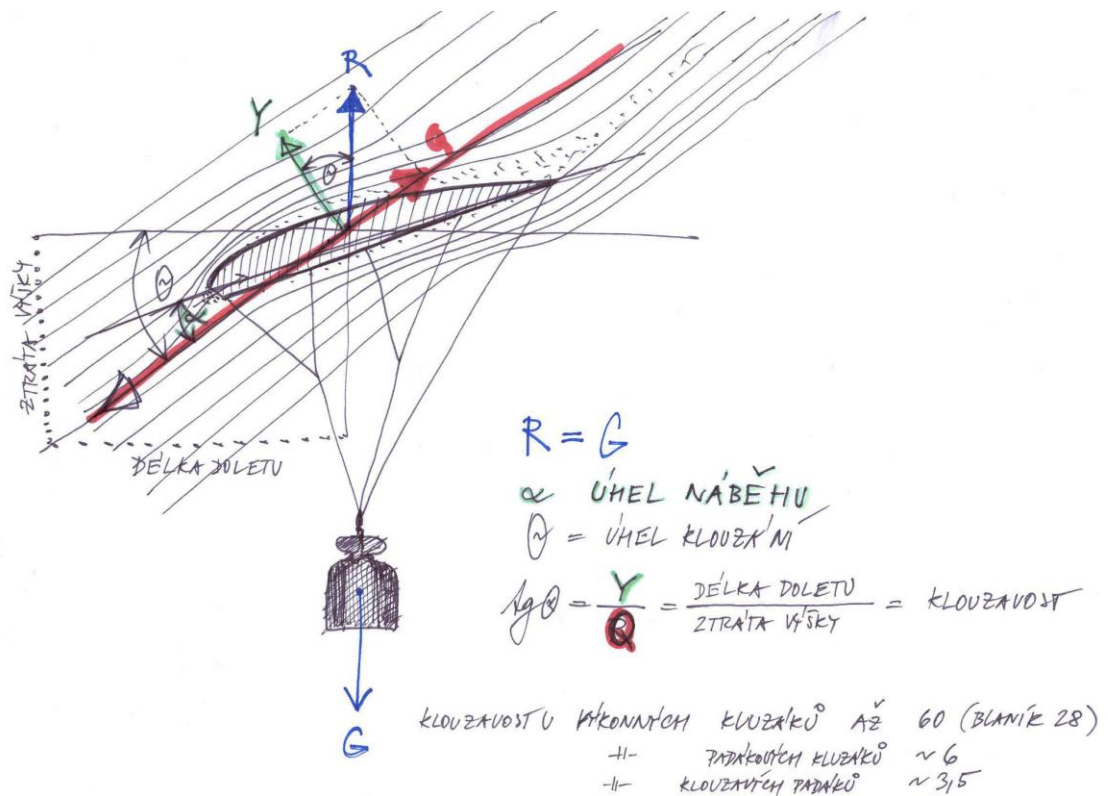 R
Y
Q
Θ
Θ
α
ZTRÁTA VÝŠKY
DÉLKA DOLETU
R = G
α ÚHEL NÁBĚHU
Θ = ÚHEL KLOUZÁNÍ
tg Θ = Y / Q = DÉLKA DOLETU / ZTRÁTA VÝŠKY = KLOUZAVOST
G
KLOUZAVOST U VÝKONNÝCH KLUZÁKŮ AŽ 60 (BLANÍK 28)
-||- PADÁKOVÝCH KLUZÁKŮ ~ 6
-||- KLOUZAVÝCH PADÁKŮ ~ 3,5